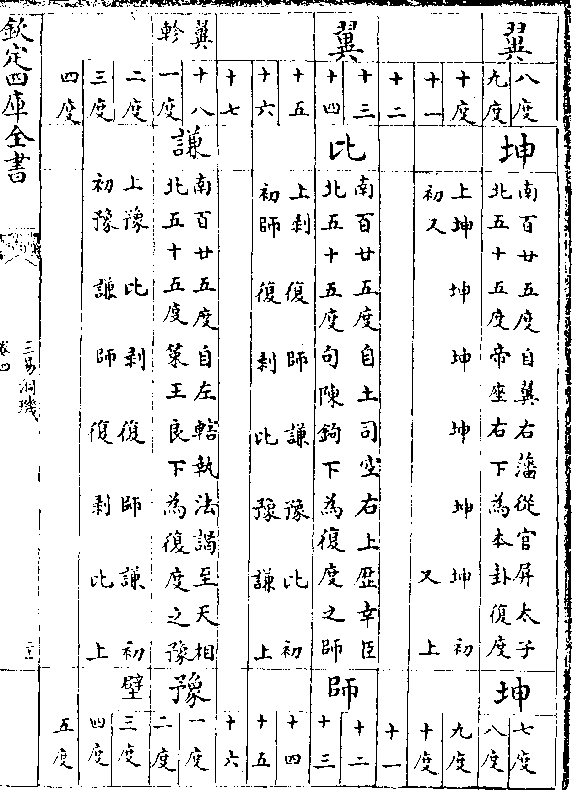 翼
翼
翼軫
八度 九度 十度 十一 十二 十三 十四 十五 十六 十七 十八 一度 二度 三度 四度
坤
比
謙
南百廿五度自翼右藩從官屏太子
北五十五度帝座右下為本卦復度
上坤坤坤坤坤坤初
初又又上
南百廿五度自土司空右上歴幸臣
北五十五度句陳鉤下為復度之師
上剥復師謙豫比初
初師復剥比豫謙上
南百廿五度自左轄執法謁至天相
北五十五度策王良下為復度之豫
上豫比剥復師謙初
初豫謙師復剥比上
坤
師
豫
壁
七度 八度 九度 十度 十一 十二 十三 十四 十五 十六 一度 二度 三度 四度 五度
欽定四庫全書
三易洞璣
卷四